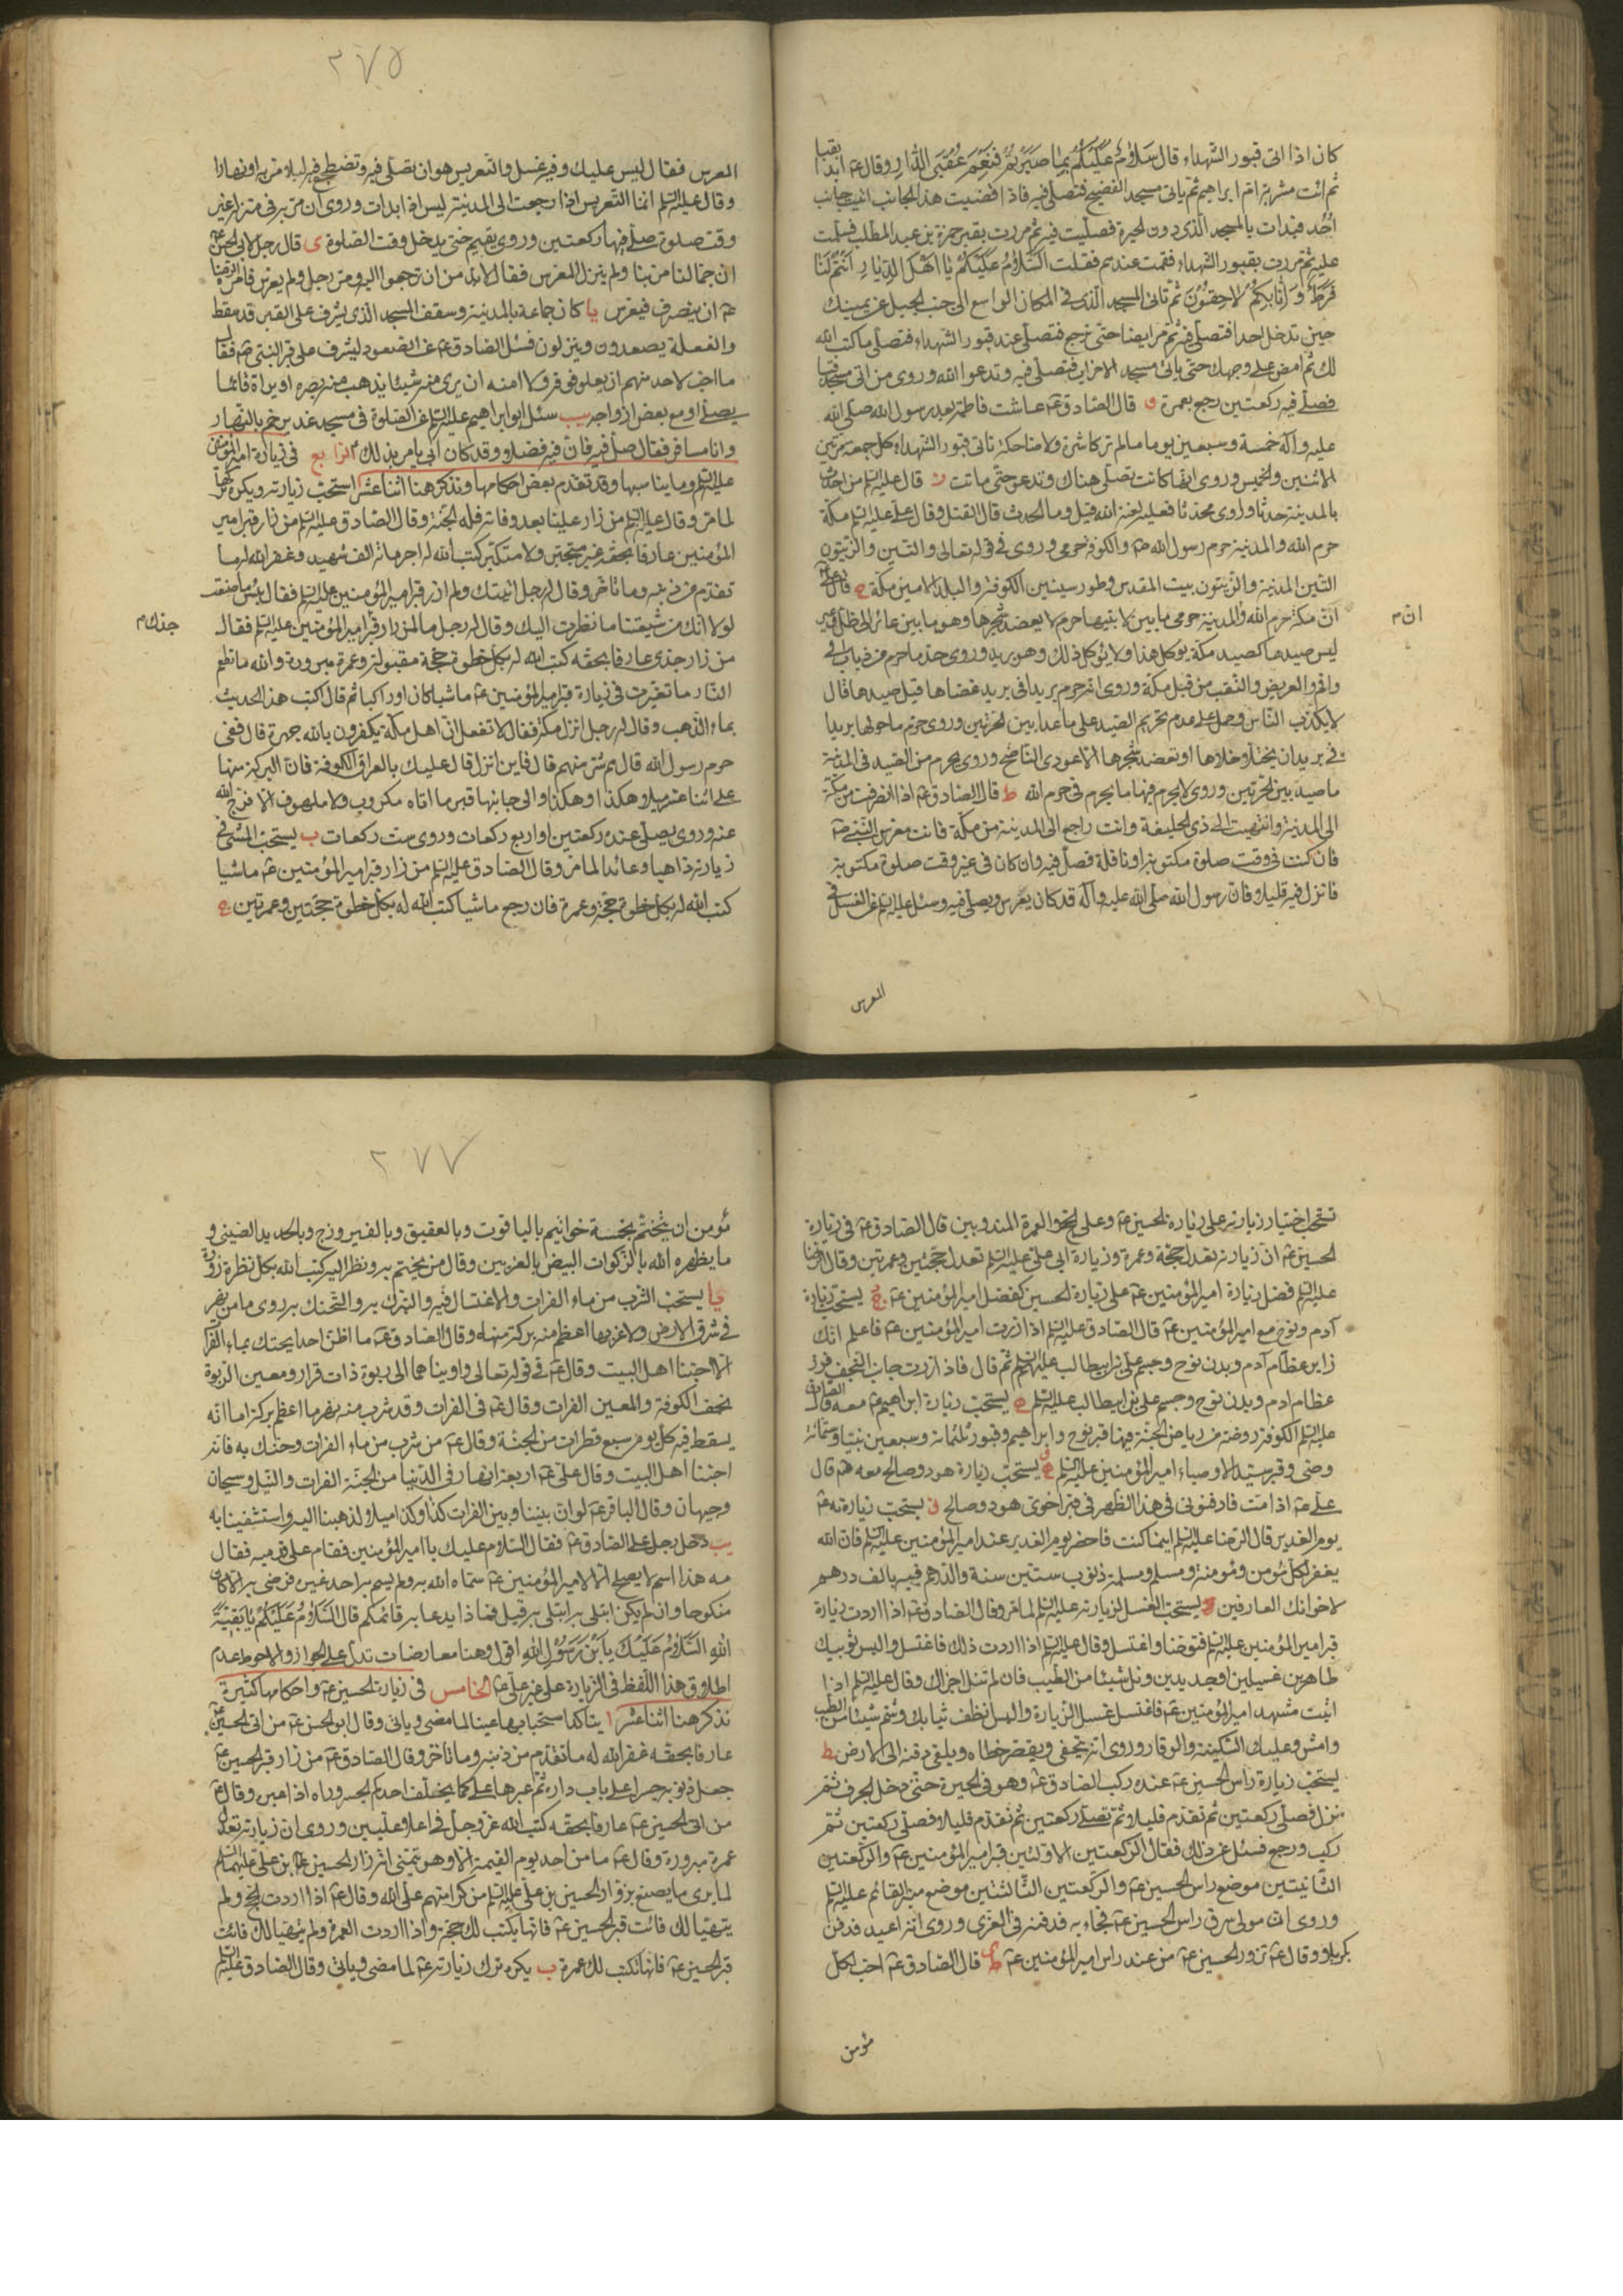 كان اذا اتى قبور الشهداء قال سَلَامٌ عَلَيْكُمْ بِمَا صَبَرْتُمْ فَنِعْمَ عُقْبَى الدَّارِ وقال ابدا بقبا
ثم ائت مشربة ام ابراهيم ثم يأتى مسجد الفضيخ فتصلى فيه فاذا قضيت هذا الجانب اتيت جانب
اُحُد فبدات بالمسجد الذى دون الحيرة فصليت فيه ثم مررت بقبر حمزة بن عبد المطلب فسلمت
عليه ثم مررت بقبور الشهداء فقمت عندهم فقلت السَّلَامُ عَلَيْكُمْ يَا اَهْلَ الدِّيَارِ اَنْتُمْ لَنَا
فَرَطٌ وَاِنَّا بِكُمْ لَاحِقُونَ ثم تاتى المسجد الذى فى المكان الواسع الى جنب الجبل عن يمينك
حين تدخل احدا فتصلى فيه ثم مر ايضا حتى ترجع فتصلى عند قبور الشهداء فتصلى ما كتب الله
لك ثم امض على وجهك حتى ياتى مسجد الاحزاب فتصلى فيه وتدعوا الله وروى من اتى مسجد قبا
فصلى فيه ركعتين رجع بعمرة و قال الصادق ع عاشت فاطمة بعد رسول الله صلى الله
عليه واله خمسة وسبعين يوما لم تر كاشرة ولا ضاحكة تاتى قبور الشهداء كل جمعة مرتين
الاثنين والخميس وروى انها كانت تصلى هناك وتدعو حتى ماتت ز قال عليه السلم من احدث
بالمدينة حدثا او اوى محدثا فعليه لعنة الله قيل وما الحدث قال القتل وقال على عليه السلم مكة
حرم الله والمدينة حرم رسول الله ص والكوفة حرمى وروى فى قوله تعالى والتين والزيتون
التين المدينة والزيتون بيت المقدس وطور سينين الكوفة والبلد الامين مكة ح قال
ان مكة حرم الله والمدينة حرمى ما بين لابتيها حرم لا يعضد شجرها وهو ما بين عائر الى ظل وعير
ان م
ليس صيدها كصيد مكة يوكل هذا ولا يوكل ذلك وهو بريد وروى حد ما حرم من ذباب الى
واقم والعريض والنقب من قبل مكة وروى انه حرم بريدا فى بريد غضاها قيل صيدها قال
لا يكذب الناس وحمل على عدم تحريم الصيد على ما عدا بين الحرتين وروى حرم ما حولها بريدا
فى بريد ان يختلا خلاها او تعضد شجرها الا عودى الناضح وروى يحرم من الصيد فى المدينة
ما صيد بين الحرتين وروى لا يحرم فيها ما يحرم فى حرم الله ط قال الصادق ع اذا انصرفت من مكة
الى المدينة وانتهيت الى ذى الحليفة وانت راجع الى المدينة من مكة فائت معرس النبى ص
فان كنت فى وقت صلوة مكتوبة او نافلة فصل فيه وان كان فى غير وقت صلوة مكتوبة
فانزل فيه قليلا فان رسول الله صلى الله عليه واله قد كان يعرس ويصلى فيه وسئل عليه السلم عن الغسل فى
المعرس
٢٧٥
المعرس فقال ليس عليك وفيه غسل والتعريس هو ان تصلى فيه وتضطجع فيه ليلا مر به او نهارا
وقال عليه السلم انما التعريس اذا رجعت الى المدينة ليس اذا بدات وروى ان مر به فى غير
وقت صلوة صلى فيها ركعتين وروى يقيم حتى يدخل وقت الصلوة ى قال رجل لابى الحسن ع
ان جمالنا مر بنا ولم ينزل المعرس فقال لابد من ان ترجعوا اليه ومر رجل ولم يعرس فامره الرضا
ع ان ينصرف فيعرس يا كان جماعة بالمدينة وسقف المسجد الذى يشرف على القبر قد سقط
والفعلة يصعدون وينزلون فسئل الصادق ع عن الصعود ليشرف على قبر النبى ص فقال
ما احب لاحد منهم ان يعلو فوقه ولا امنه ان يرى منه شيئا يذهب منه بصره او يراه قائما
يصلى او مع بعض ازواجه يب سئل ابو ابراهيم عليه السلم عن الصلوة فى مسجد غدير خم بالنهار
وانا مسافر فقال صل فيه فان فيه فضلا وقد كان ابى يامر بذلك الرابع فى زيارة امير المؤمنين
عليه السلم وما يناسبها وقد تقدم بعض احكامها ونذكر هنا اثنا عشر ا استحب زيارته ويكره تركها
لما مر وقال عليه السلم من زار علينا بعد وفاته فله الجنة وقال الصادق عليه السلم من زار قبر امير
المؤمنين عارفا بحقه غير متجبر ولا متكبر كتب الله له اجر مائة الف شهيد وغفر الله له ما
تقدم من ذنبه وما تاخر وقال له رجل اتيتك ولم ازر قبر امير المؤمنين عليه السلم فقال بئس ما صنعت
لولا انك من شيعتنا ما نظرت اليك وقال له رجل ما لمن زار قبر امير المؤمنين عليه السلم فقال
جدك م
من زار جدى عارفا بحقه كتب الله له بكل خطوة حجة مقبولة وعمرة مبرورة والله ما تطعم
النار ما تغبرت فى زيارة قبر امير المؤمنين ع ماشيا كان او راكبا ثم قال اكتب هذا الحديث
بماء الذهب وقال له رجل انزل مكة فقال لا تفعل ان اهل مكة يكفرون بالله جهرة قال ففى
حرم رسول الله قال هم شر منهم قال فاين انزل قال عليك بالعراق الكوفة فان البركة منها
على اثنا عشر ميلا هكذا وهكذا والى جانبها قبر ما اتاه مكروب ولا ملهوف الا فرج الله
عنه وروى يصلى عنده ركعتين او اربع ركعات وروى ست ركعات ب يستحب المشى فى
زيارته ذاهبا وعائدا لما مر وقال الصادق عليه السلم من زار قبر امير المؤمنين ع ماشيا
كتب الله له بكل خطوة حجة وعمرة فان رجع ماشيا كتب الله له بكل خطوة حجتين وعمرتين ج
تستحب اختيار زيارته على زيارة الحسين ع وعلى الحج والعمرة المندوبين قال الصادق ع فى زيارة
الحسين ع ان زيارته تعدل حجة وعمرة وزيارة ابى على عليه السلم تعدل حجتين وعمرتين وقال الرضا
عليه السلم فضل زيارة امير المؤمنين ع على زيارة الحسين كفضل امير المؤمنين ع يستحب زيارة
آدم ونوح مع امير المؤمنين ع قال الصادق عليه السلم اذا زرت امير المؤمنين ع فاعلم انك
زاير عظام آدم وبدن نوح وجسم على بن ابيطالب عليه السلم ثم قال فاذا زرت جانب النجف فزر
عظام ادم وبدن نوح وجسم على بن ابيطالب عليه السلم ه يستحب زيارة ابراهيم ع معه قال الصادق
عليه السلم الكوفة روضة من رياض الجنة فيها قبر نوح وابراهيم وقبور ثلثمائة وسبعين نبيا وستمائة
وصى وقبر سيد الاوصياء امير المؤمنين عليه السلم و يستحب زيارة هود وصالح معه هم قال
على ع اذا مت فادفنونى فى هذا الظهر فى قبر اخوى هود وصالح ز يستحب زيارته ع
يوم الغدير قال الرضا عليه السلم اينما كنت فاحضر يوم الغدير عند امير المؤمنين عليه السلم فان الله
يغفر لكل مؤمن ومؤمنة ومسلم ومسلمة ذنوب ستين سنة والدرهم فيه بالف درهم
لاخوانك العارفين ح يستحب الغسل لزيارته عليه السلم لما مر وقال الصادق ع اذا اردت زيارة
قبر امير المؤمنين عليه السلم فتوضا واغتسل وقال عليه السلم اذا اردت ذلك فاغتسل والبس ثوبيك
طاهرين غسيلين او جديدين ونل شيئا من الطيب فان لم تنل اجزاك وقال عليه السلم اذا
اتيت مشهد امير المؤمنين ع فاغتسل غسل الزيارة والبس انظف ثيابك وشم شيئا من الطيب
وامش وعليك السكينة والوقار وروى انه يتحفى ويقصر خطاه ويلقى ذقنه الى الارض ط
يستحب زيارة راس الحسين ع عنده ركب الصادق ع وهو فى الحيرة حتى دخل الجرف ثم
نزل فصلى ركعتين ثم تقدم قليلا ثم تصلى ركعتين ثم تقدم قليلا فصلى ركعتين ثم
ركب ورجع فسئل عن ذلك فقال الركعتين الاولتين قبر امير المؤمنين ع والركعتين
الثانيتين موضع راس الحسين ع والركعتين الثالثتين موضع منبر القائم عليه السلم
وروى ان مولى سرق راس الحسين ع فجاء به فدفنه فى الغرى وروى انه اعيد فدفن
بكربلا وقال ع تزور الحسين ع من عند راس امير المؤمنين ع ى قال الصادق ع احب لكل
مؤمن
٢٧٧
مؤمن ان يتختم بخمسة خواتيم بالياقوت وبالعقيق وبالفيروزج وبالحديد الصينى و
ما يظهره الله بالذكوات البيض بالغريين وقال من يختتم به ونظر اليه كتب الله بكل نظرة زورة
يا يستحب الشرب من ماء الفرات والاغتسال فيه والتبرك به والتحنك به روى ما من نهر
فى شرق الارض ولا غربها اعظم منه بركة وقال الصادق ع ما اظن احدا يحنك بماء الفرات
الا احبنا اهل البيت وقال ع فى قوله تعالى واويناهما الى ربوة ذات قرار ومعين الربوة
نجف الكوفة والمعين الفرات وقال ع فى الفرات وقد شرب منه نهر ما اعظم بركته اما انه
يسقط فيه كل يوم سبع قطرات من الجنة وقال ع من شرب من ماء الفرات وحنك به فانه
احبنا اهل البيت وقال على ع اربعة انهار فى الدنيا من الجنة الفرات والنيل وسيحان
وجيهان وقال الباقر ع لو ان بيننا وبين الفرات كذا وكذا ميلا لذهبنا اليه واستشفينا به
يب دخل رجل على الصادق ع فقال السلام عليك يا امير المؤمنين فقام على قدميه فقال
مه هذا اسم لا يصلح الا لامير المؤمنين ع سماه الله به ولم يسم به احد غيره فرضى به الا كان
منكوحا وان لم يكن ابتلى به ابتلى به قيل فماذا يدعا به قائمكم قال السَّلَامُ عَلَيْكُمْ يَا بَقِيَّةَ
اللهِ السَّلَامُ عَلَيْكَ يَا بْنَ رَسُولِ اللهِ اقول وهنا معارضات تدل على الجواز والاحوط عدم
اطلاق هذا اللفظ فى الزيارة على غير على ع الخامس فى زيارة الحسين ع واحكامها كثيرة
نذكر هنا اثنا عشر ا يتاكد استحبابها عينا لما مضى وياتى وقال ابو الحسن ع من اتى الحسين ع
عارفا بحقه غفر الله له ما تقدم من ذنبه وما تاخر وقال الصادق ع من زار قبر الحسين ع
جعل ذنوبه جسرا على باب داره ثم عبرها على كما يخلف احدكم الجسر وراه اذا عبر وقال ع
من اتى الحسين ع عارفا بحقه كتب الله عز وجل فى اعلا عليين وروى ان زيارته تعدل
عمرة مبرورة وقال ع ما من احد يوم القيمة الا وهو يتمنى انه زار الحسين بن على عليهما السلم
لما يرى ما يصنع بزوار الحسين بن على عليه السلم من كرامتهم على الله وقال ع اذا اردت الحج ولم
يتهيا لك فائت قبر الحسين ع فانها يكتب لك حجة واذا اردت العمرة ولم يتهيا لك فائت
قبر الحسين ع فانها تكتب لك عمرة ب يكره ترك زيارته ع لما مضى وياتى وقال الصادق عليه السلم